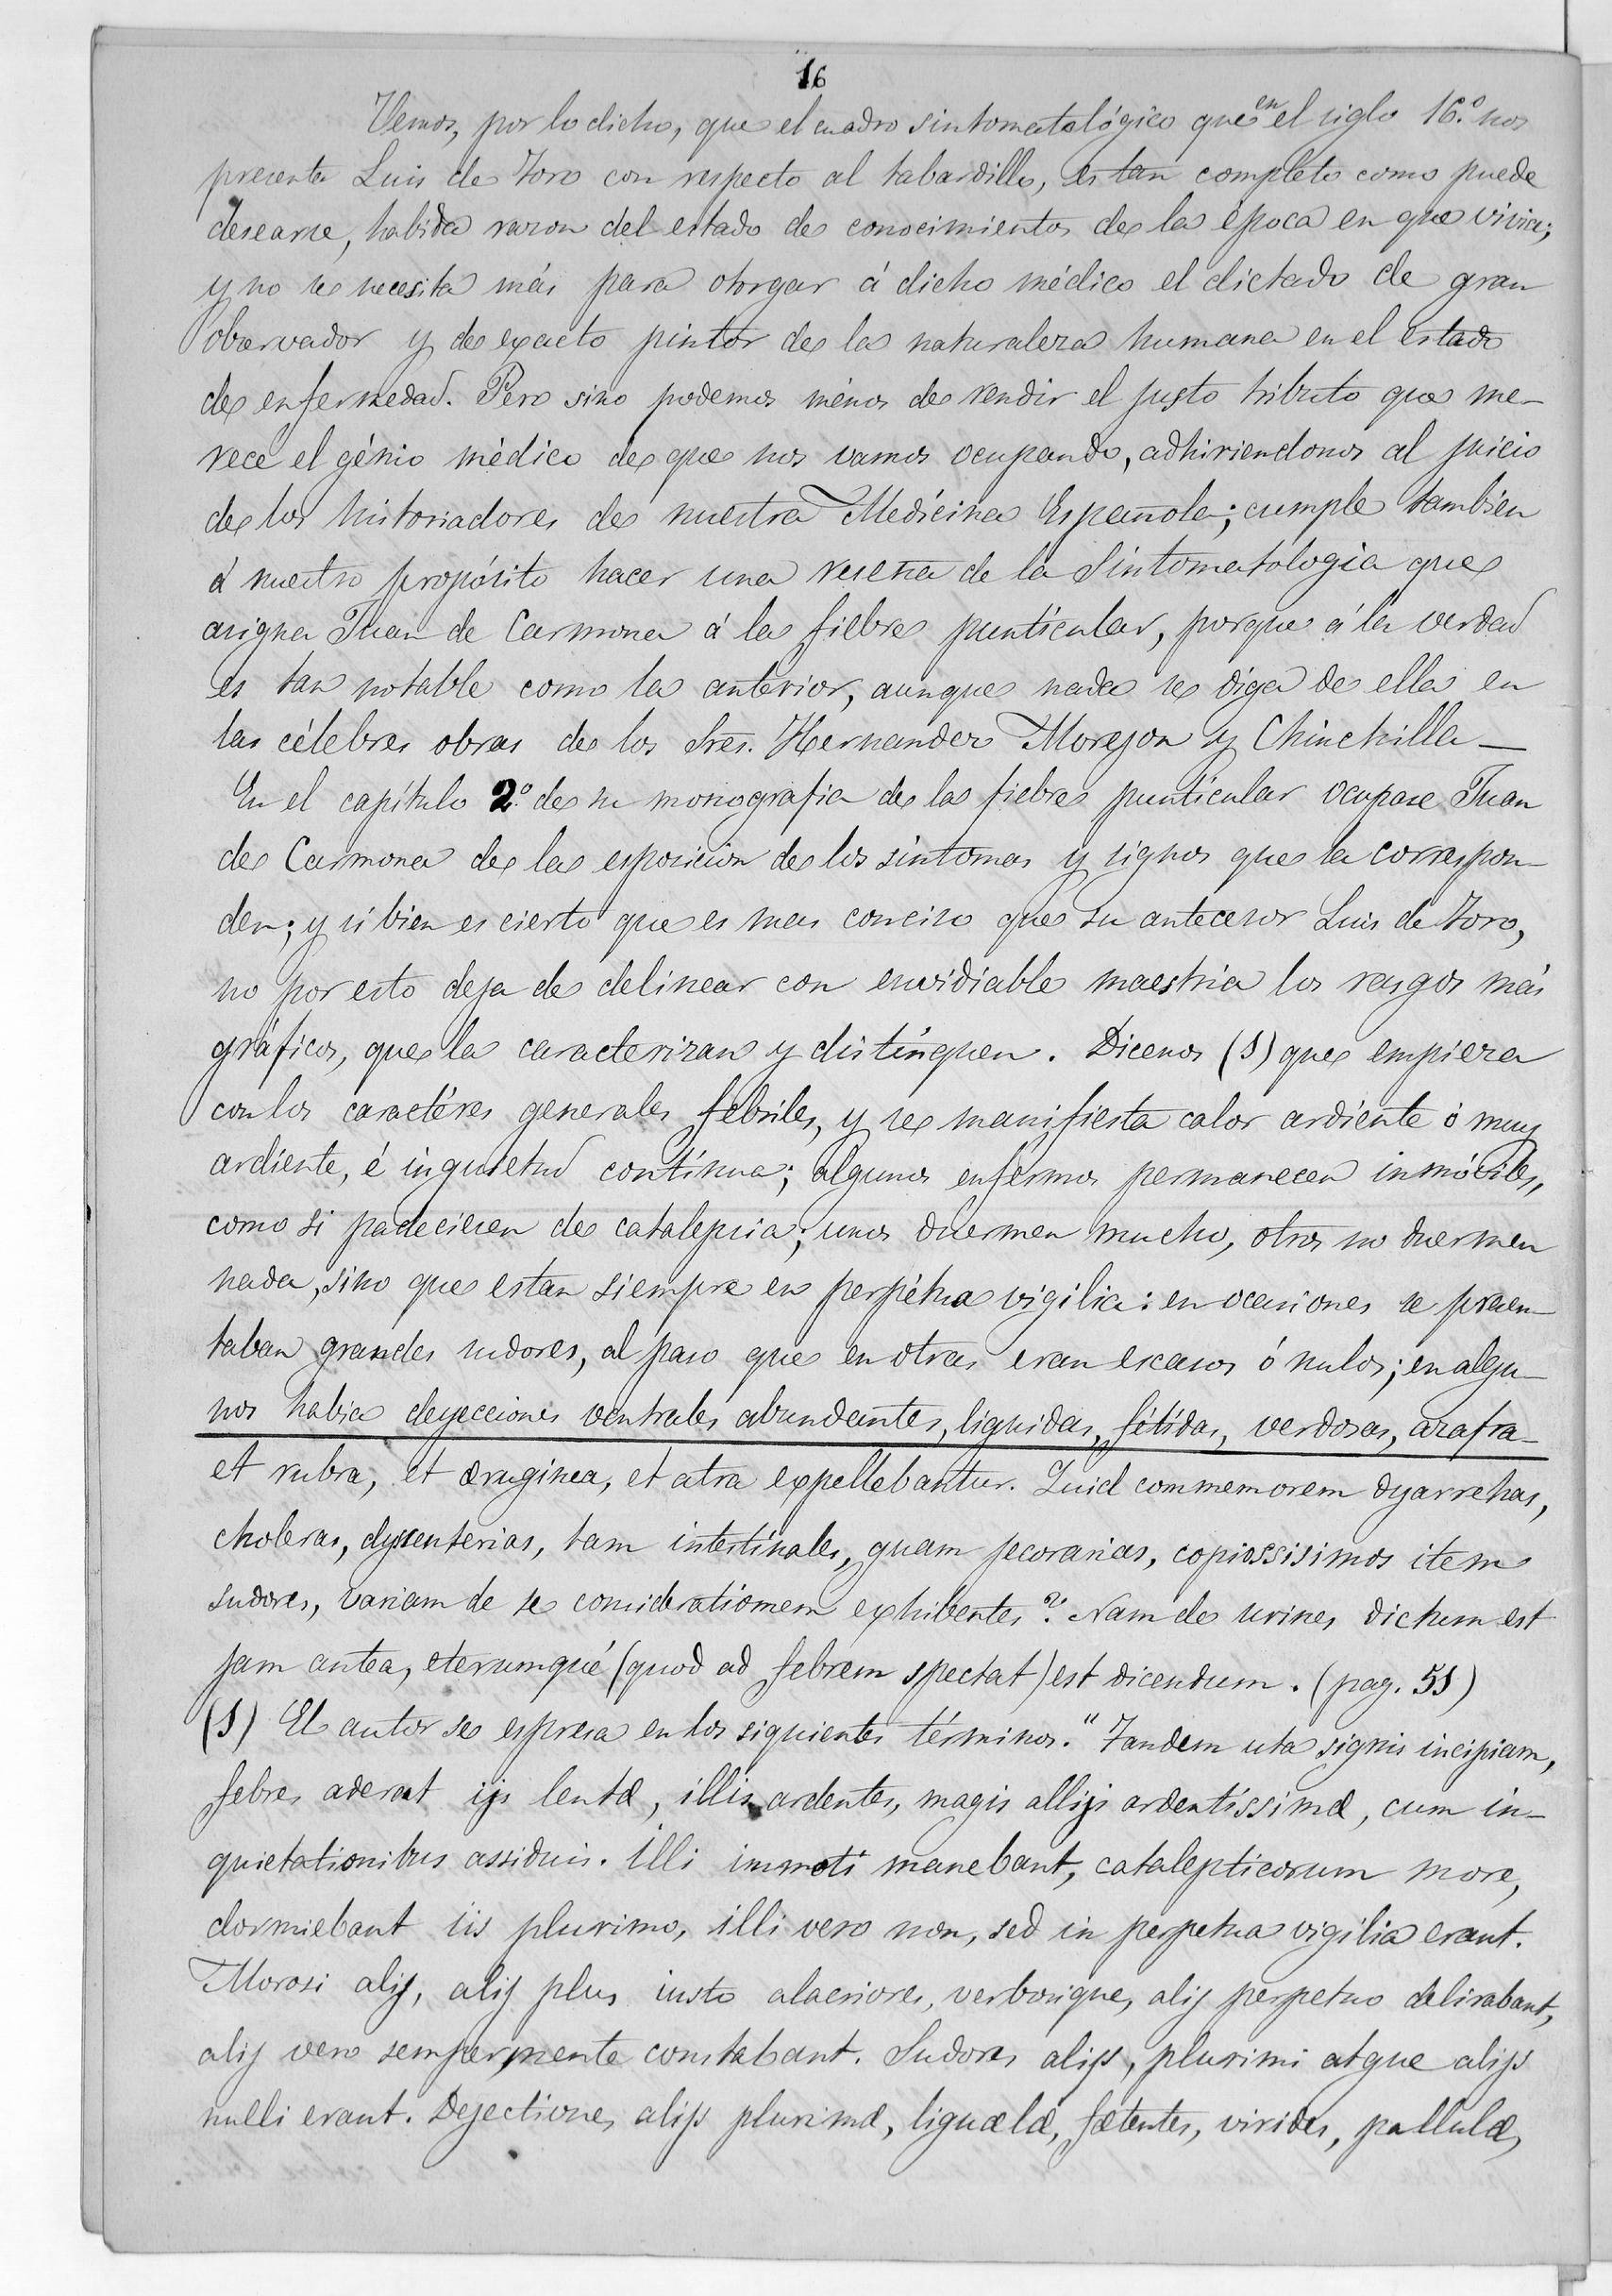 16
Vemos, por lo dicho, que el cuadro sintomatológico que en el siglo 16.º nos
presenta Luis de Toro con respecto al tabardillo, es tan completo como puede
desearse, habida razon del estado de conocimientos de la época en que vivia;
y no se necesita más para otorgar á dicho médico el dictado de gran
observador y de exacto pintor de la naturaleza humana en el estado
de enfermedad. Pero sino podemos ménos de rendir el justo tributo que me-
rece el génio médico de que nos vamos ocupando, adhiriendonos al juicio
de los historiadores de nuestra Medicina Española; cumple tambien
á nuestro propósito hacer una reseña de la Sintomatologia que
asigna Juan de Carmona á la fiebre punticular, porque á la verdad
es tan notable como la anterior, aunque nada se diga de ella en
las célebres obras de los Sres. Hernandez Morejon y Chinchilla —
En el capítulo 2.º de su monografia de la fiebre punticular ocupase Juan
de Carmona de la esposicion de los síntomas y signos que la correspon-
den; y si bien es cierto que es mas conciso que su antecesor Luis de Toro,
no por esto deja de delinear con envidiable maestria los rasgos más
gráficos, que la caracterizan y distinguen. Dicenos (1) que empieza
con los caractéres generales febriles, y se manifiesta calor ardiente ó muy
ardiente, é inquietud contínua; algunos enfermos permanecen inmóviles,
como si padeciesen de catalepsia; unos duermen mucho, otros no duermen
nada, sino que estan siempre en perpétua vigilia: en ocasiones se presen-
taban grandes sudores, al paso que en otras eran escasos ó nulos; en algu-
nos habia deyecciones ventrales abundantes, liquidas, fétidas, verdosas, azafra-
et rubra, et æruginea, et atra expellebantur. Quid commemorem dyarrehas,
choleras, dysenterias, tam intestinales, quam jecorarias, copiossisimos item
sudores, variam de se consideratiomem exhibentes? Nam de urines dictum est
jam antea, eterumqué (quod ad febrem spectat) est dicendum. (pag. 51)
(1) El autor se espresa en los siguientes términos. "Tandem uta signis incipiam,
febres aderat ijs lentæ, illis ardentes, magis allijs ardentissimæ, cum in-
quietationibus assiduis. illi immoti manebant, catalepticorum more,
dormiebant iis plurimo, illi vero non, sed in perpetua vigilia erant.
Morosi alij, alij plus iusto alacriores, verbosique, alij perpetuo delirabant,
alij vero semper mente constabant. Sudores alijs, plurimi atque alijs
nulli erant. Dejectiones alijs plurimæ, liquælæ, fætentes, virides, pallulæ,